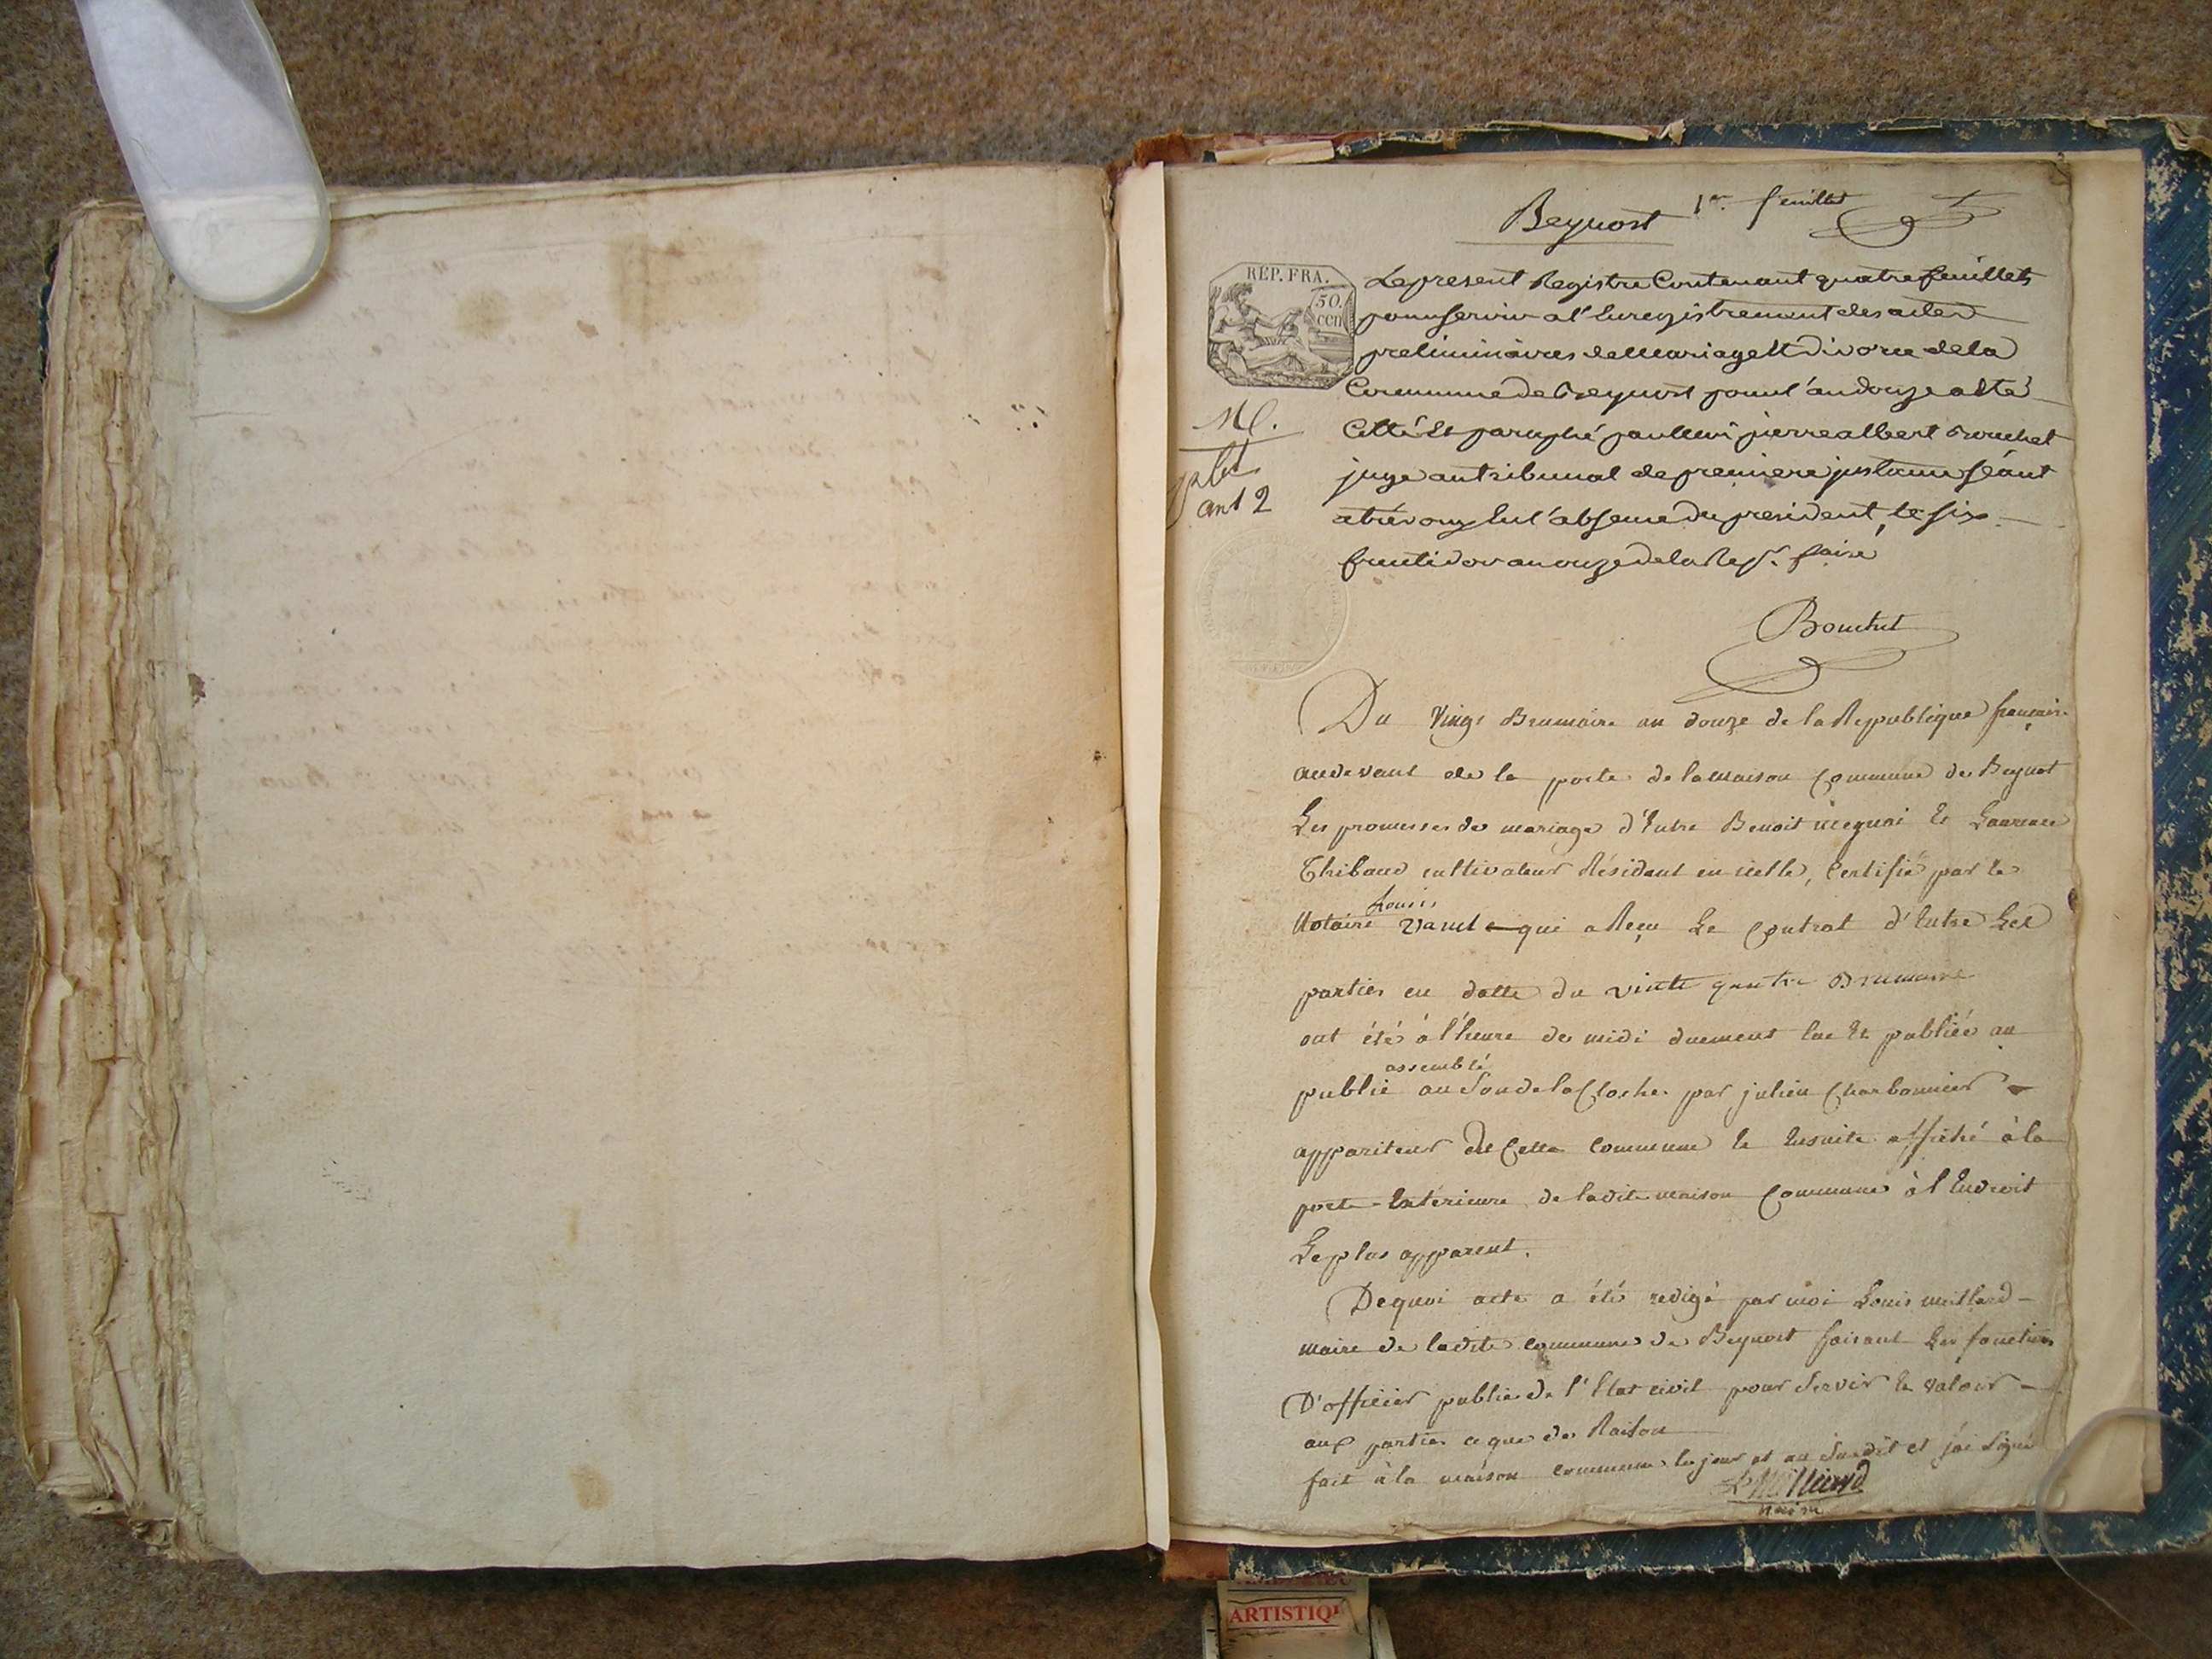 Beynost 1er feuillet
REP. FRA.
50.
cen
Le present Registre Contenant quatre feuillets
pour servir a l'Enregistrement des actes
preliminaires de Mariage Et divorce de la
Commune de Beynost pour l'an douze a été
Cotté Et paraphé par Nous pierre albert Bouchet
juge au tribunal de premiere jnstance séant
a trévoux En l'absence du president, le six
fructidor an onze de la Rep. faise
M.
an 12
Bouchet
Du Vingt Brumaire an douze de la Republique francaise
audevant de la porte de la maison Commune de Beynost
Les promesses de mariage d'Entre Benoit Et Laurence
Thibaud cultivateur Résidant en icelle, Certifié par le
Louis
Notaire qui a Reçu Le Contrat d'Entre Les
parties en datte du vinte quatre Brumaire
ont été à l'heure de midi duement lue Et publiée au
assemblé
public au Son de la Cloche par julien Charbonnier
appariteur de Cette Commune Et Ensuite affiché à la
porte Extérieure de ladite maison Commune à l'Endroit
Le plus apparent.
Dequoi acte a été redigé par moi Louis
maire de ladite commune de Beynost faisant Les fonctions
D'officier public de l'Etat civil pour Servir Et valoir
aux parties ce que de Raison
fait à la maison commune les jour et an Susdit et j'ai Signé
maire
ARTISTIQ